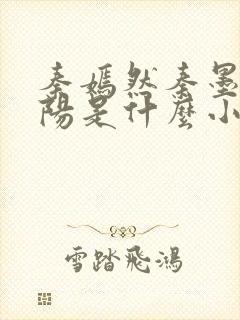 秦嫣然秦墨
陽是什麼小
雪踏飛鴻